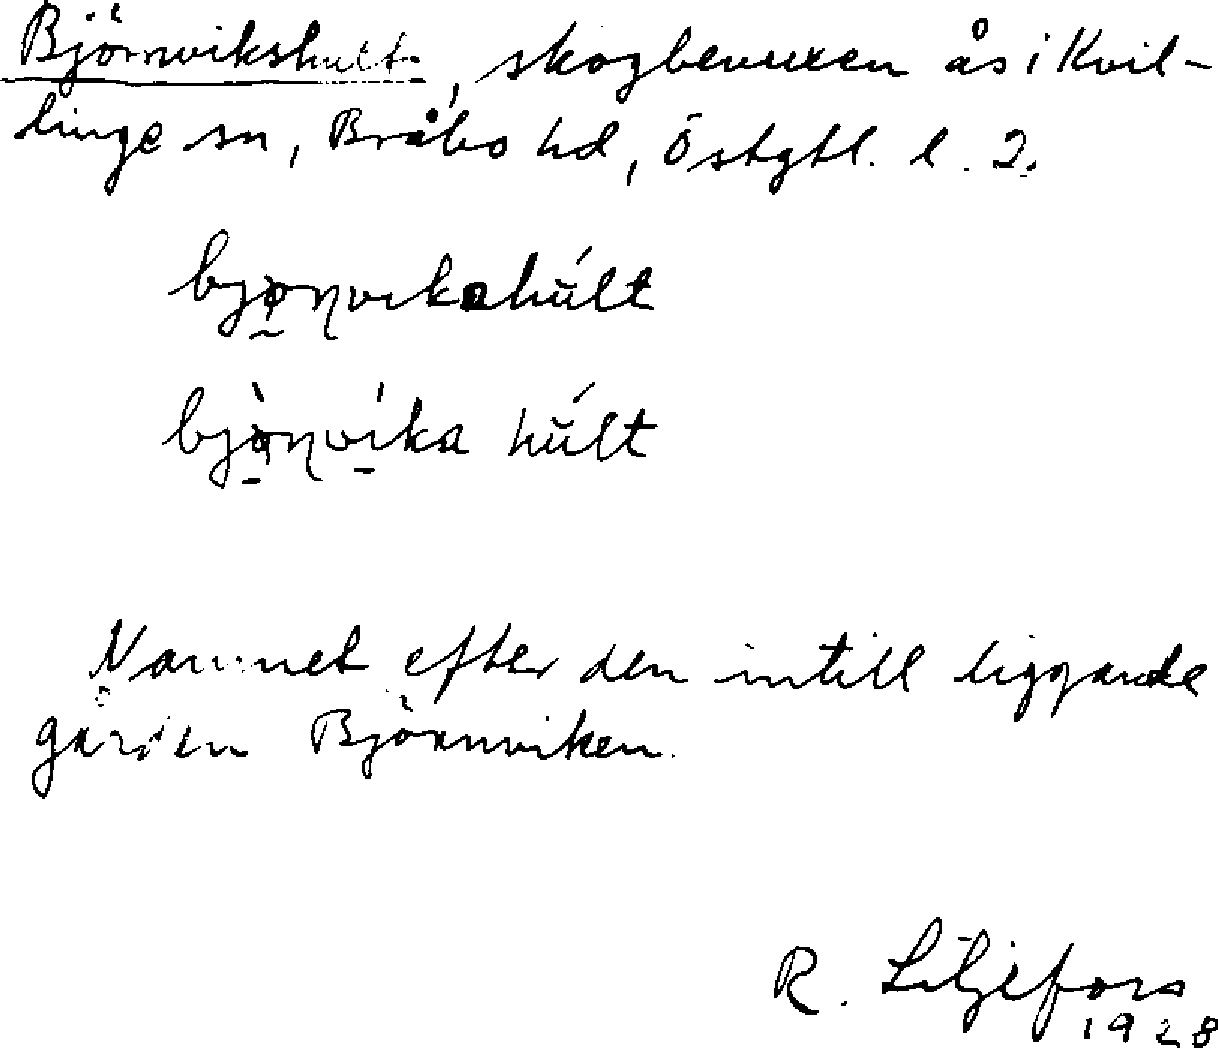 Björnvikshult, skogbevuxen ås i Kvil-
linge sn, Bråbo hd, Östgtl. l. 2.
bjo̰ɳvikahúlt
bjò̱ɳvi̱ka húlt
Namnet efter den intill liggande
gården Björnviken.
R. Liljefors
1928